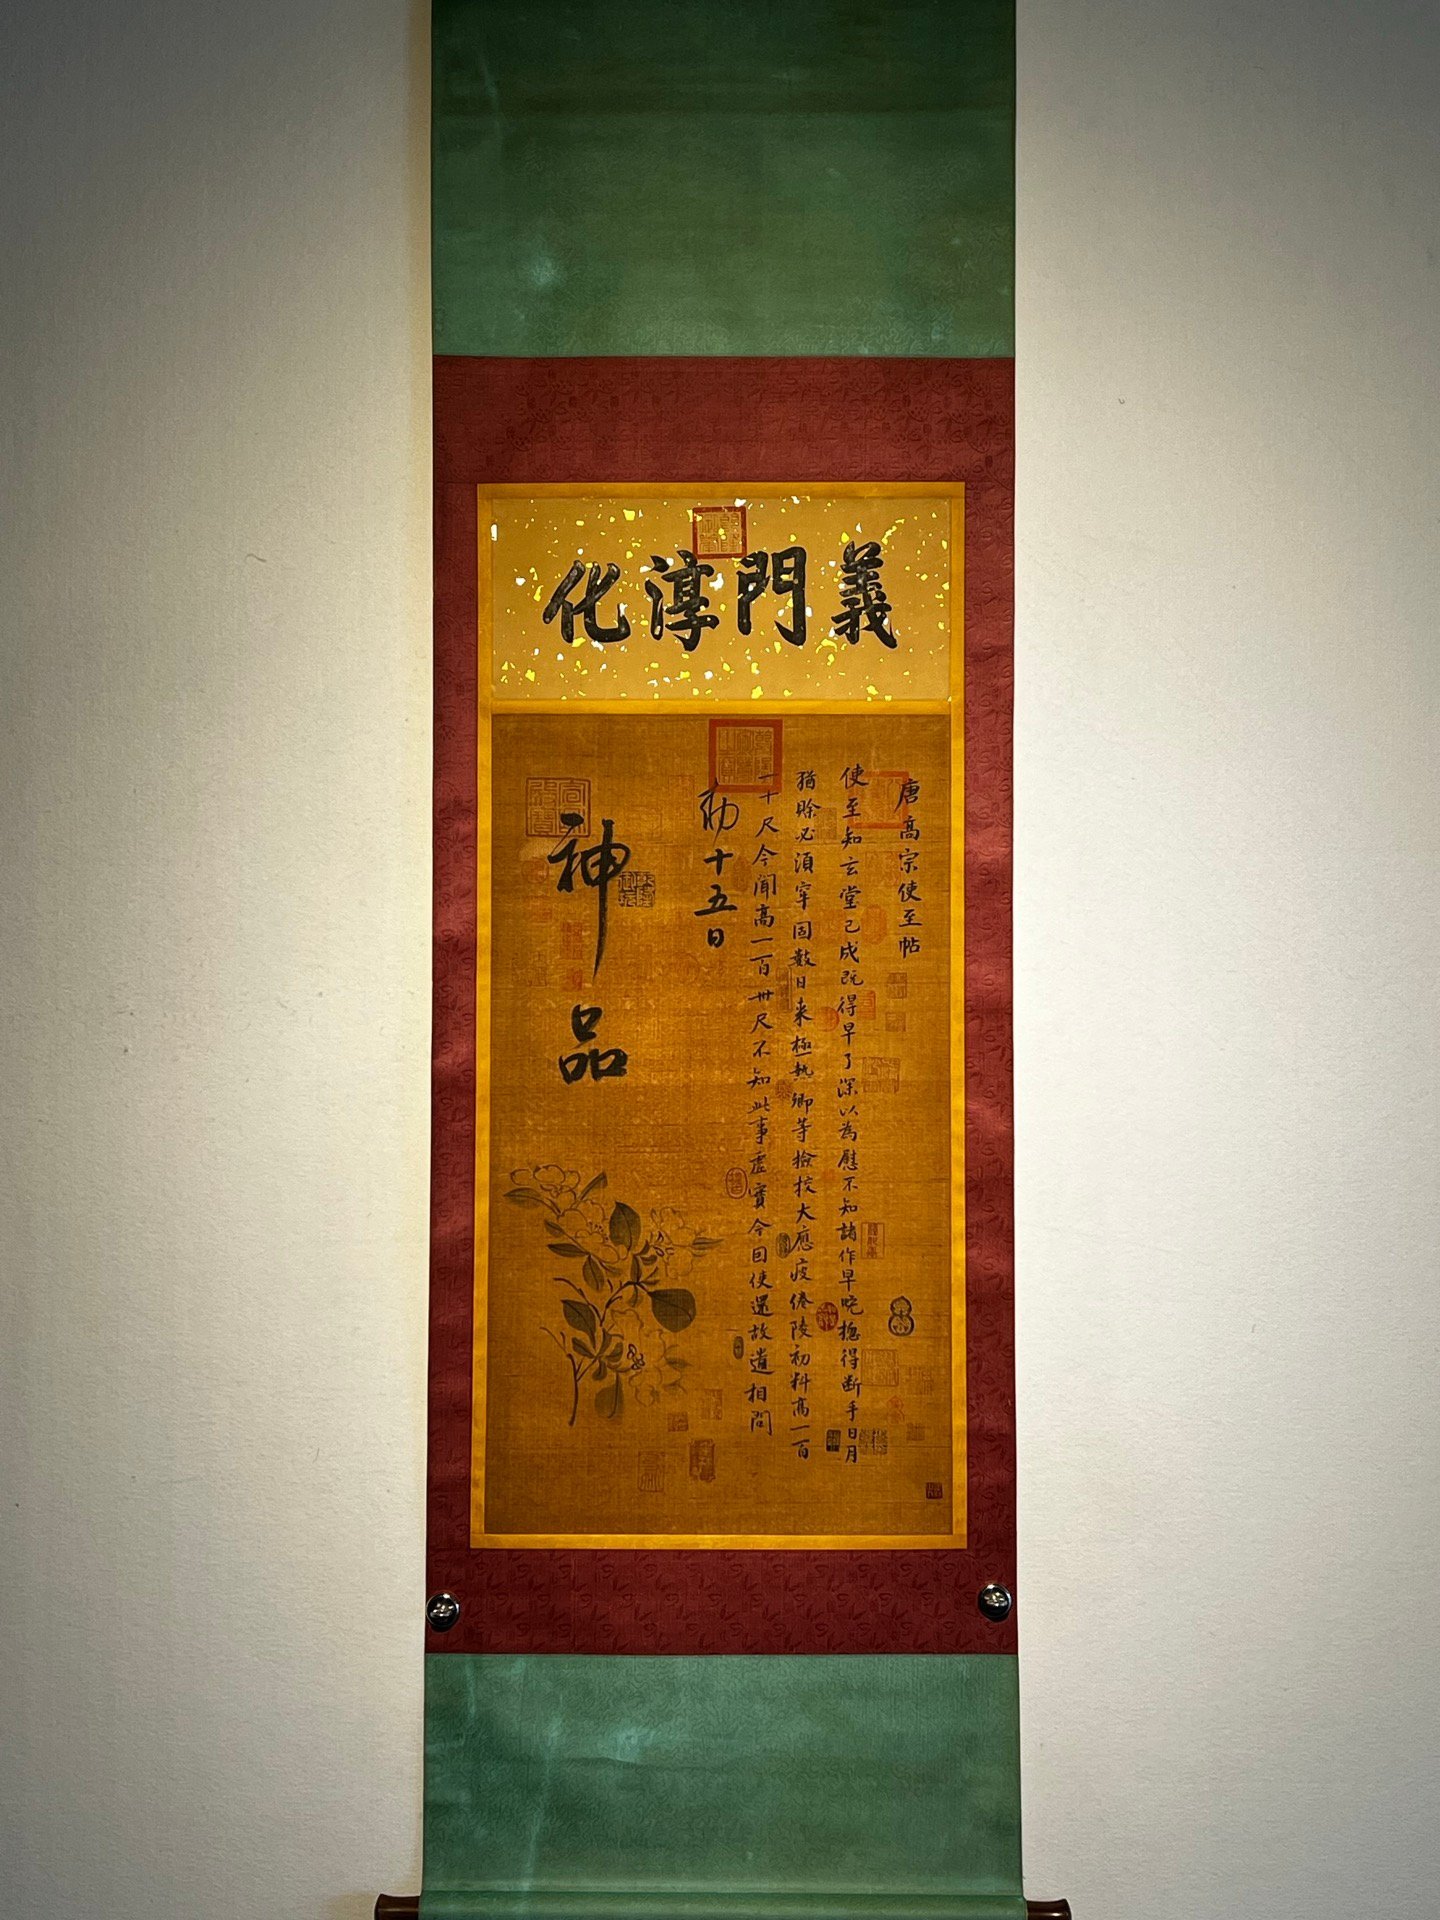 義門淳化
唐高宗使至帖
使至知玄堂已成既得早了深以為慰不知諸作早晚揔得斷手日月
猶賒必須牢固數日来極熱卿等檢挍大應疲倦陵初料高一百
一十尺今聞高一百卅尺不知此事虛實今回使還故遣相問
勅十五日
神品